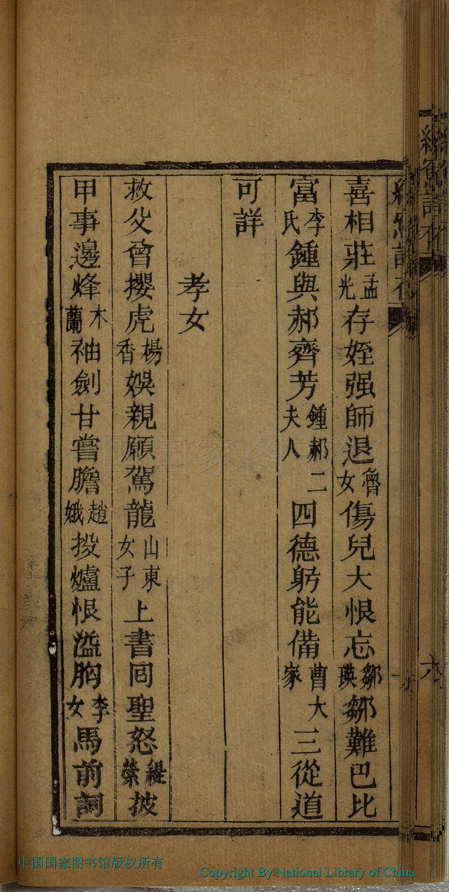 喜相莊孟光存姪强師退魯女傷兒大恨忘鄒瑛鄒難巴比
富李氏鍾與郝齊芳鍾郝二夫人四德躬能備曹大家三從道
可詳
孝女
救父曾攖虎楊香娛親願駕龍山東女子上書囘聖怒緹縈披
甲事邊烽木蘭袖劍甘嘗膽趙娥投爐恨溢胸李女馬前詞
中国国家图书馆版权所有
Copyright By National Library of China